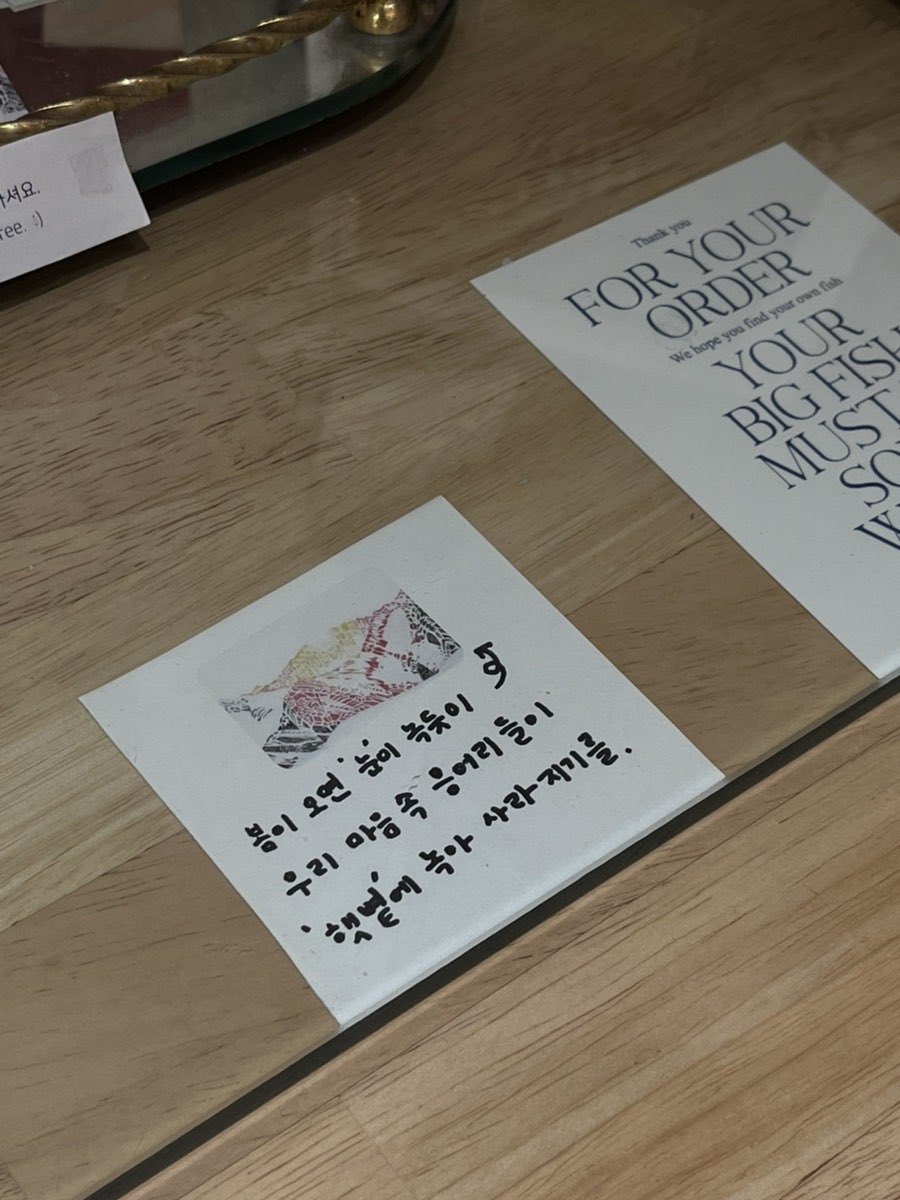 셔요.
ree. :)
Thank you
FOR YOUR
ORDER
We hope you find your own fish
YOUR
BIG FISH
MUST
SO
봄이 오면 '눈'이 녹듯이
우리 마음속 응어리들이
'햇볕'에 녹아 사라지기를.